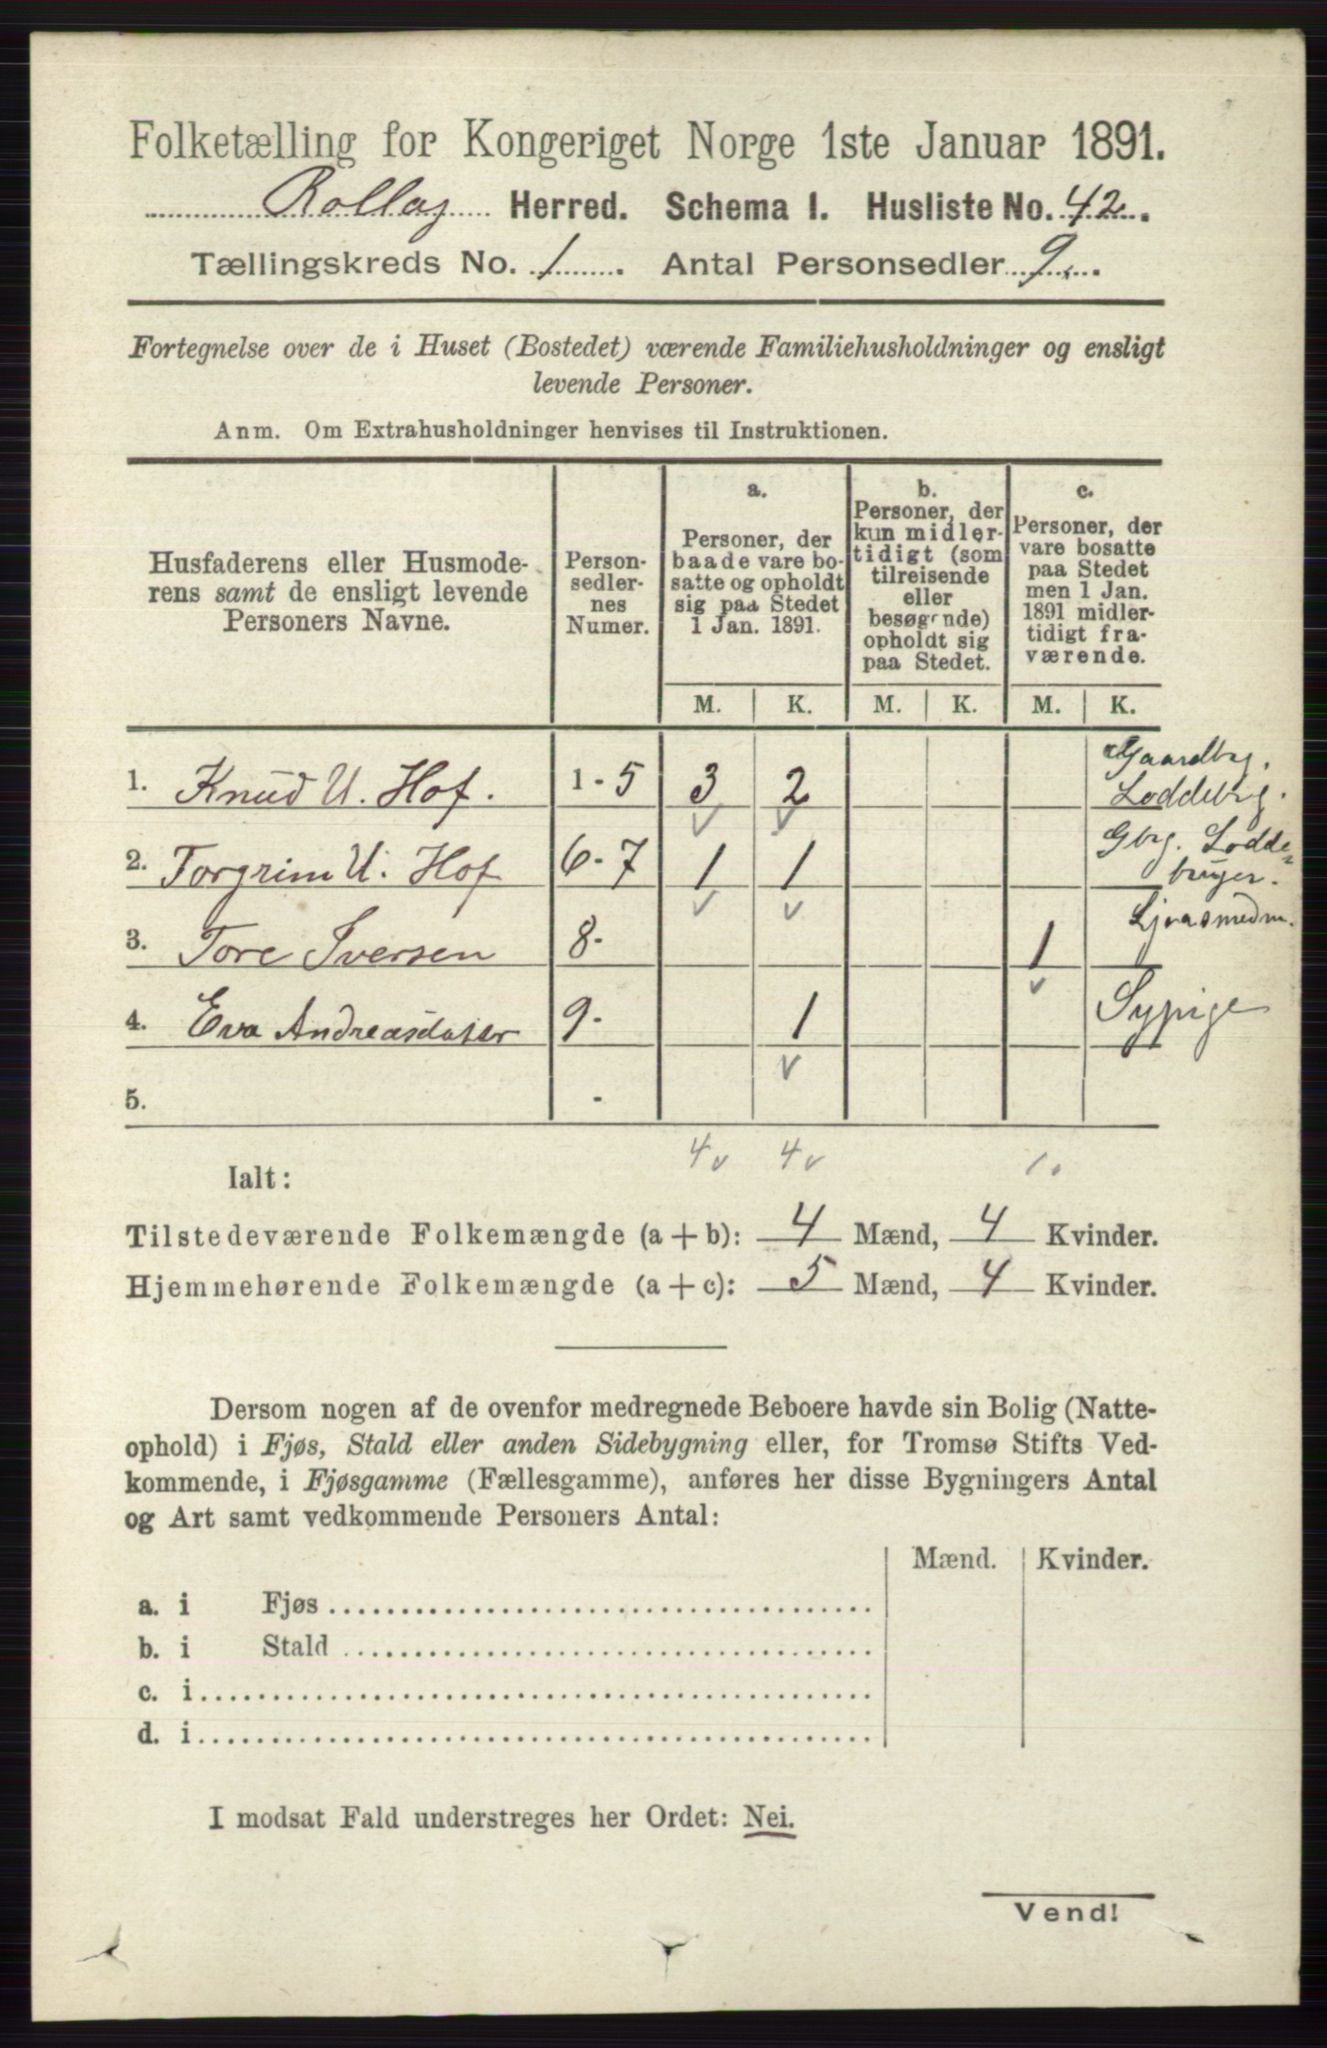 Folketælling for Kongeriget Norge 1ste Januar 1891.
Rollag Herred. Schema I. Husliste No. 42.
Tællingskreds No. 1. Antal Personsedler 9.
Fortegnelse over de i Huset (Bostedet) værende Familiehusholdninger og ensligt
levende Personer.
Anm. Om Extrahusholdninger henvises til Instruktionen.
Husfaderens eller Husmode-
rens samt de ensligt levende
Personers Navne.
Person-
sedler-
nes
Numer.
a.
Personer, der
baade vare bo-
satte og opholdt
sig paa Stedet
1 Jan. 1891.
b.
Personer, der
kun midler-
tidigt (som
tilreisende
eller
besøgende)
opholdt sig
paa Stedet.
c.
Personer, der
vare bosatte
paa Stedet
men 1 Jan.
1891 midler-
tidigt fra-
værende.
M. K. M. K. M. K.
1. Knud U. Hof. 1-5 3 2 Gaardbrg.
Loddebrg.
2. Torgrim U. Hof 6-7 1 1 Gbrg. Lodde-
bruger.
3. Tore Iversen 8- 1
4. Eva Andreasdatter 9- 1 Sypige
5. -
4 v 4 v 1.
Ialt:
Tilstedeværende Folkemængde (a + b): 4 Mænd, 4 Kvinder.
Hjemmehørende Folkemængde (a + c): 5 Mænd, 4 Kvinder.
Dersom nogen af de ovenfor medregnede Beboere havde sin Bolig (Natte-
ophold) i Fjøs, Stald eller anden Sidebygning eller, for Tromsø Stifts Ved-
kommende, i Fjøsgamme (Fællesgamme), anføres her disse Bygningers Antal
og Art samt vedkommende Personers Antal:
Mænd. Kvinder.
a. i Fjøs
b. i Stald
c. i
d. i
I modsat Fald understreges her Ordet: Nei.
Vend!